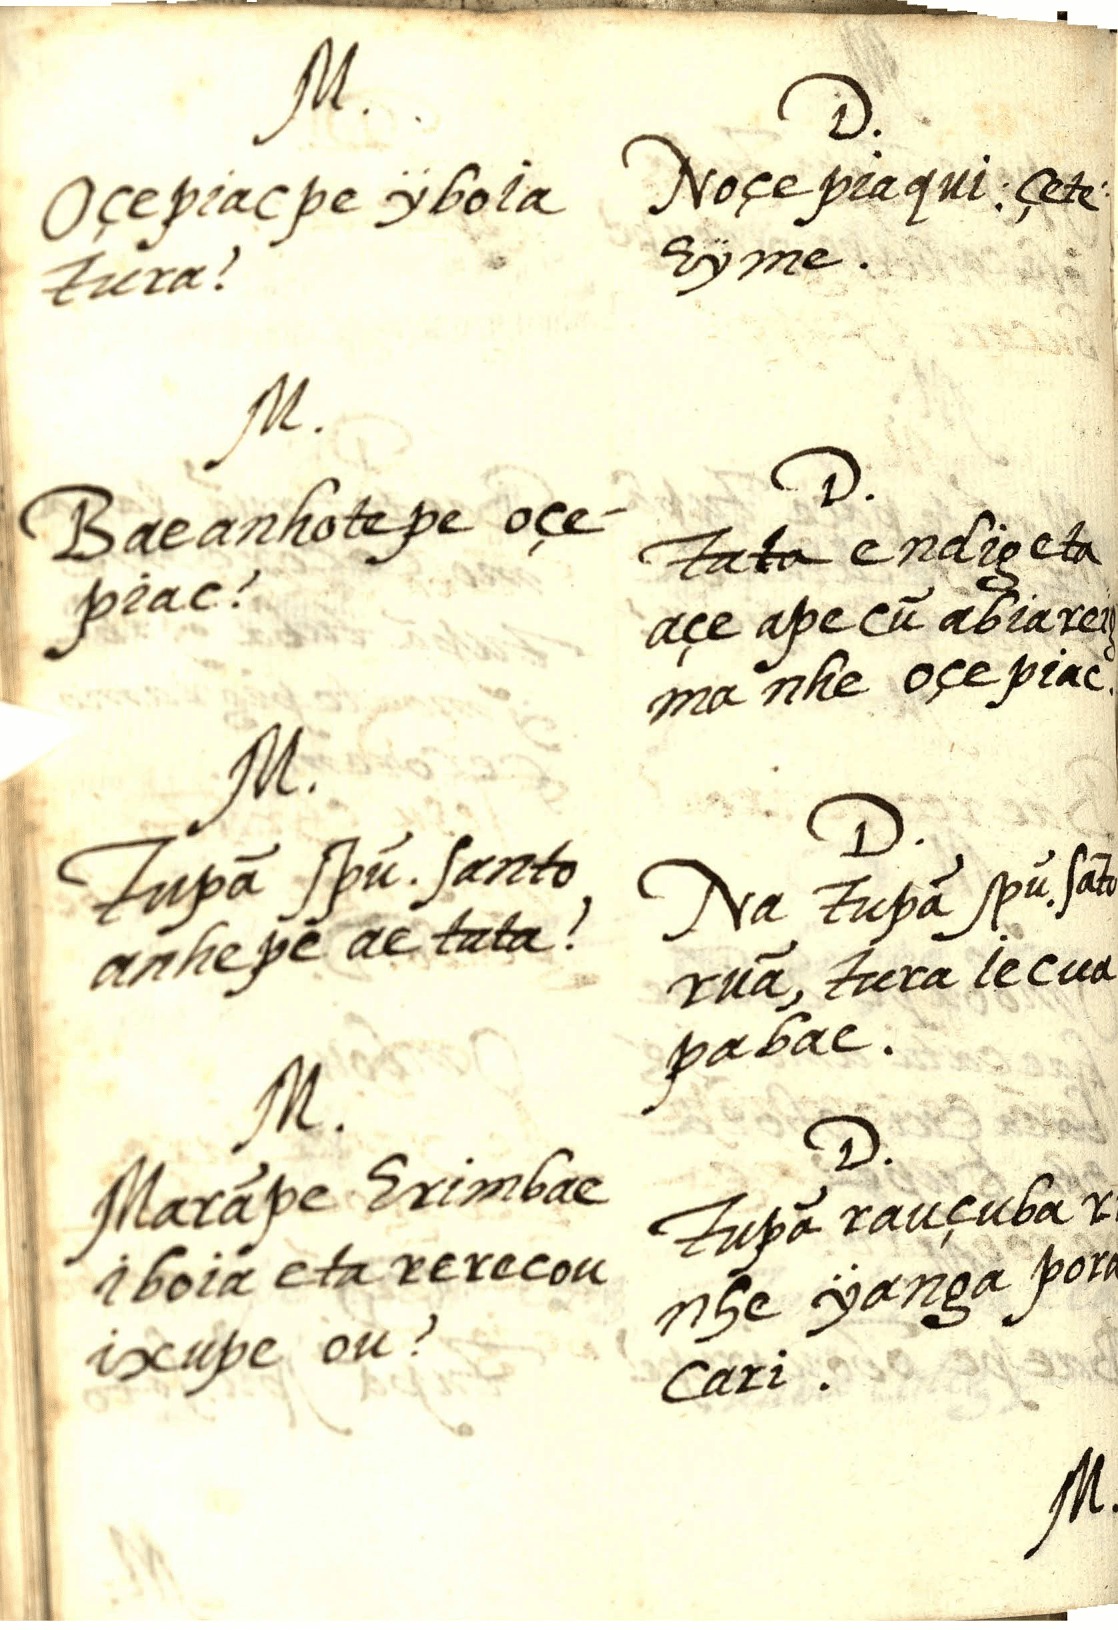 M.
Oçepiacpe ÿboia
tura?
D.
Noçepiaqui: çete
Eÿme.
M.
Baeanhotepe oçe-
piac?
D.
tata endigeta
açe apecũ abiareig
ma nhe oçepiac.
M.
Tupã spũ. santo
anhepe ae tata?
D.
Na tupã spũ. sãto
ruã, tura iecua
pabae.
M.
Marãpe Erimbae
iboia eta rerecou
ixupe ou?
D.
Tupã rauçuba ri
nhe ÿanga pora
cari.
M.